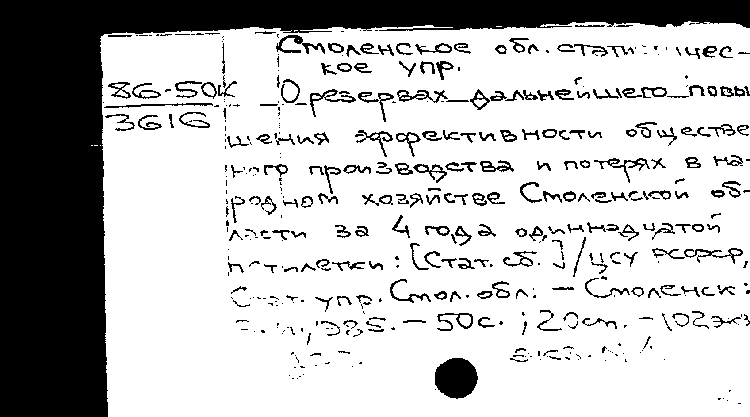 Смоленское обл. статистичес-
кое упр.
86-50К
3616
О резервах дальнейшего повы
шения эффективности обществе
ного производства и потерях в на-
родном хозяйстве Смоленской об-
ласти за 4 года одиннадцатой
пятилетки: [Стат. сб.] / ЦСУ РСФСР,
Стат. упр. Смол. обл. - Смоленск:
1985. - 50с.; 20см. - 102экз
экз. N